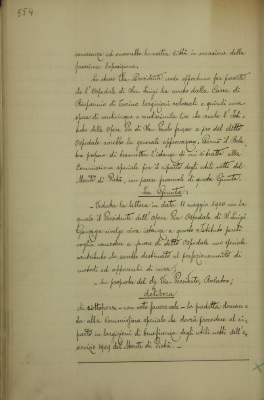 554
concorrenza ed accorrerà la nostra Città in occasione della
prossima Esposizione.
Lo stesso Vice Presidente rende opportuno far presente
che l'Ospedale di San Luigi ha avuto dalla Cassa di
Risparmio di Torino largizioni notevoli e quindi non
spera di ordinarne e moltissimo con che anche l'Isti-
tuto delle Opere Pie di San Paolo fruisce a pro del detto
Ospedale avrebbe la generale approvazione.
ha proposto di trasmettere l'istanza di cui si tratta alla
Commissione speciale per il riparto degli utili netti del
Monte di Pietà, con parere favorevole di questa Giunta.
La Giunta,
Veduta la lettera in data 11 maggio 1910 con la
quale il Presidente dell'Opera Pia Ospedale di S. Luigi
Gonzaga rivolge viva istanza a questo Istituto perché
voglia concedere a favore di detto Ospedale un speciale
contributo che sarebbe destinato al perfezionamento di
metodi ed apparecchi di cura;
Su proposta del Sig. Vice Presidente, Relatore;
delibera
di sottoporre - con voto favorevole - la predetta doman-
da alla Commissione speciale che dovrà procedere al ri-
parto in largizioni di beneficenza degli utili netti dell'e-
sercizio 1909 del Monte di Pietà. -